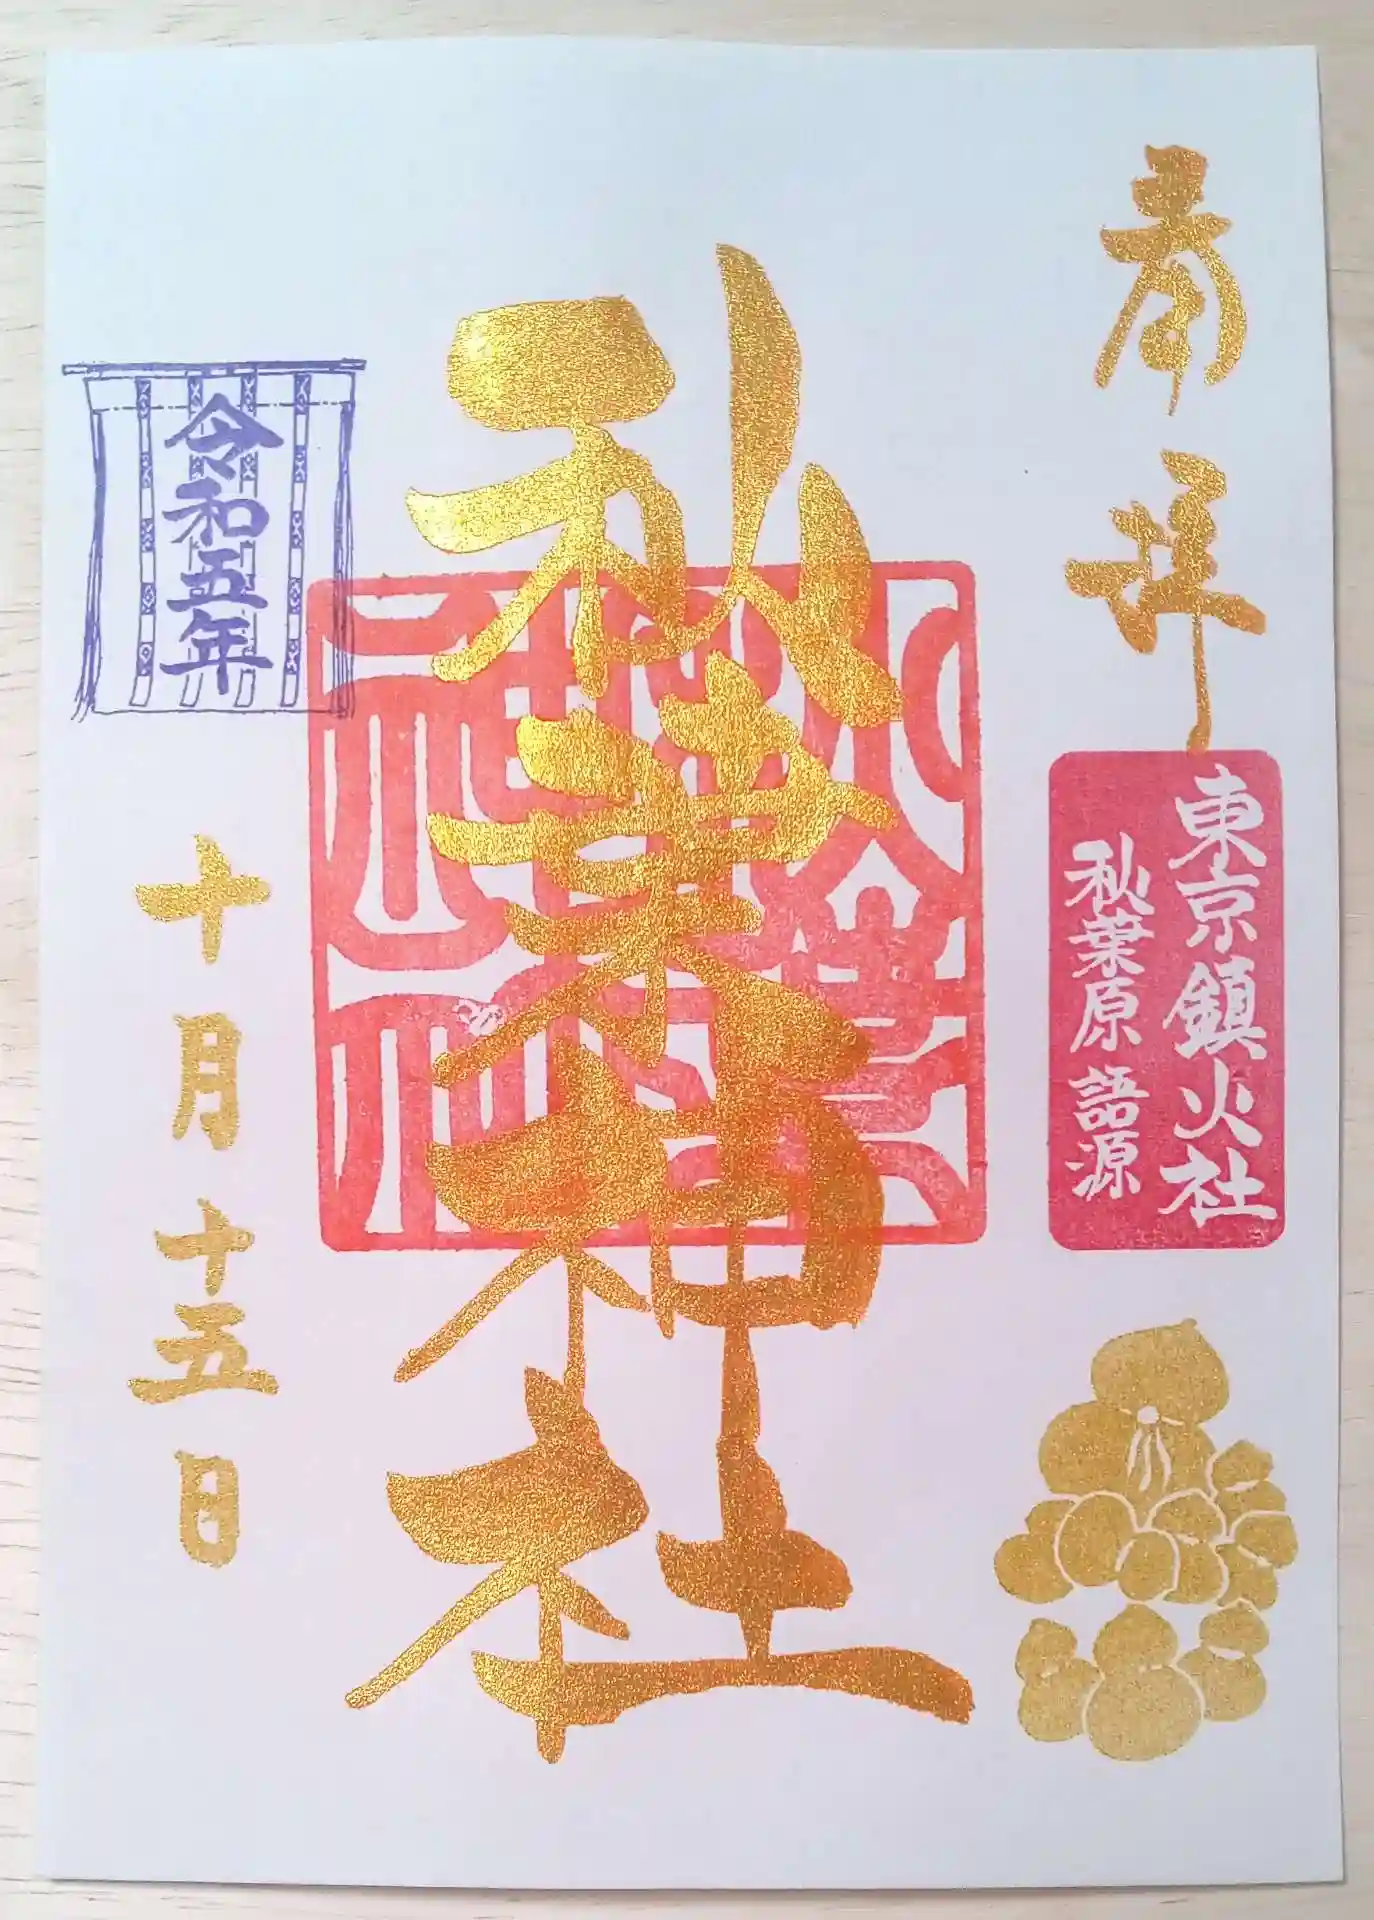 奉拝
東京鎮火社
秋葉原 語源
秋葉神社
令和五年
十月十五日